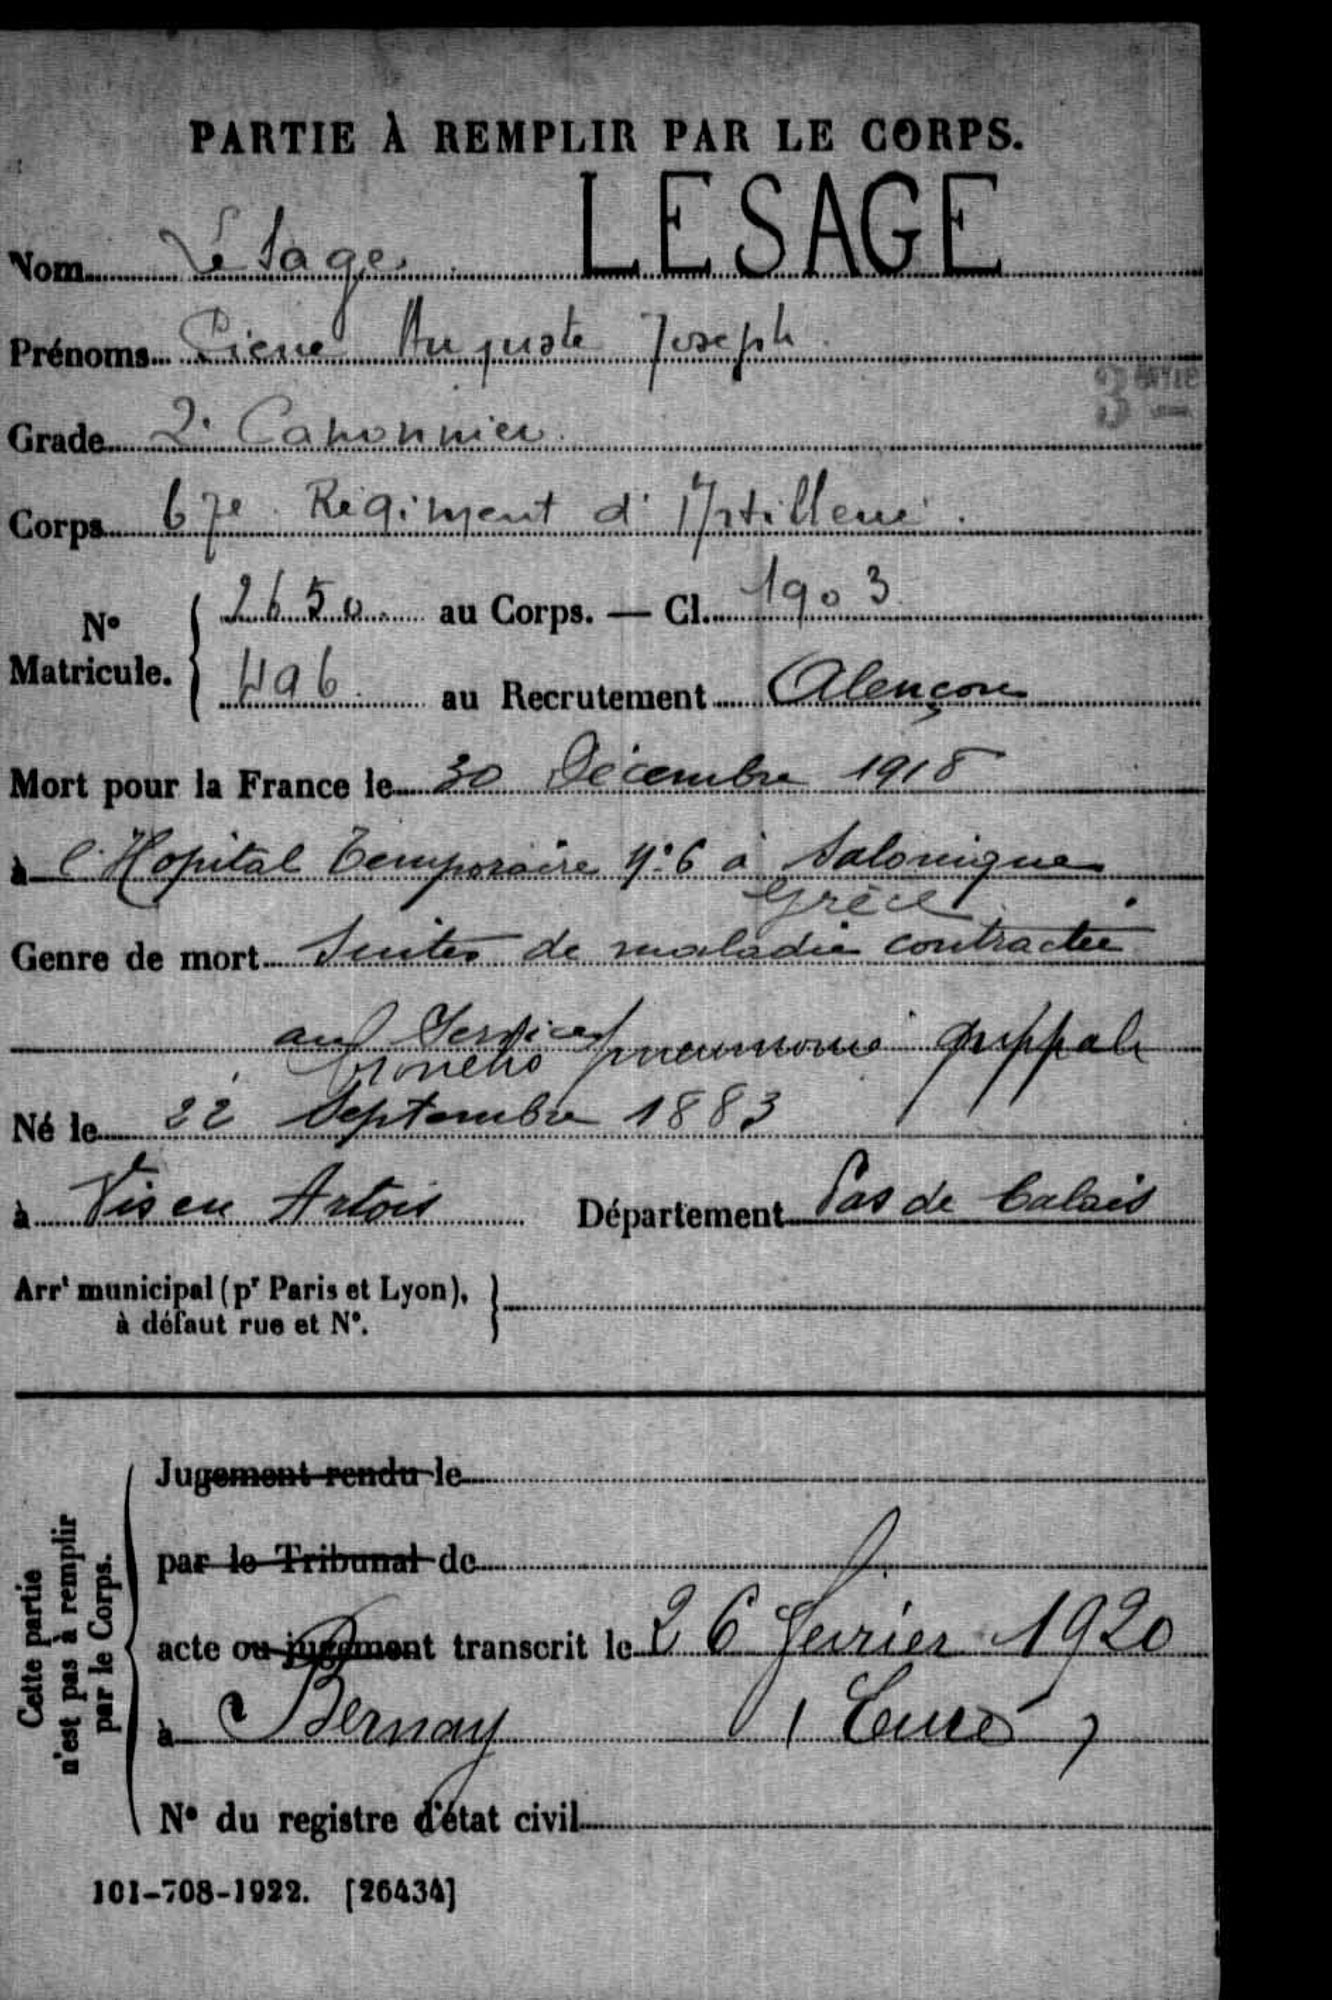 PARTIE À REMPLIR PAR LE CORPS.
LESAGE
Nom Le Sage
Prénoms Pierre Auguste Joseph
3 PARTIE
Grade 2e Canonnier
Corps 67e Régiment d'Artillerie.
N° Matricule. { 2650 au Corps. — Cl. 1903
496 au Recrutement Alençon
Mort pour la France le 30 Décembre 1918
à l'Hopital Temporaire N°6 à Salonique
Grèce
Genre de mort Suites de maladie contractée
au Service
broncho pneumonie grippale
Né le 22 Septembre 1883
à Vis en Artois Département Pas de Calais
Arrt municipal (pr Paris et Lyon), à défaut rue et N°. }
Cette partie n'est pas à remplir par le Corps.
Jugement rendu le
par le Tribunal de
acte ou jugement transcrit le 26 février 1920
à Bernay (Eure)
N° du registre d'état civil
101-708-1922. [26434]